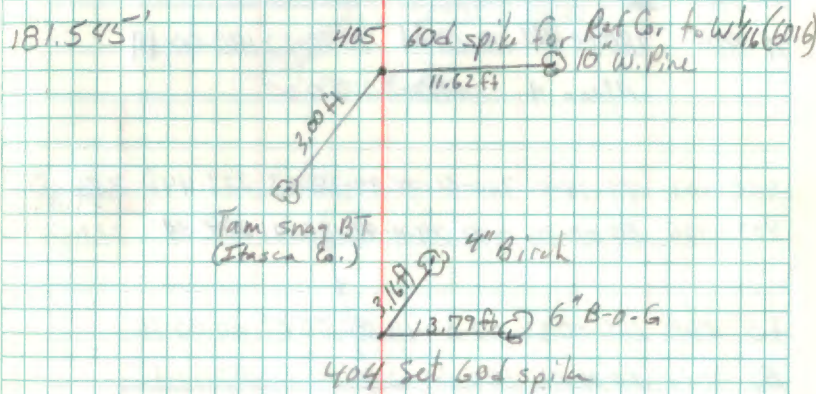 181.545'
405 60d spike for Ref Cor to W 1/16 (6016)
10" W. Pine
11.62 ft
3.00 ft
Tam snag BT
(Itasca Co.)
4" Birch
3.16 ft
13.79 ft 6" B-o-G
404 Set 60d spike